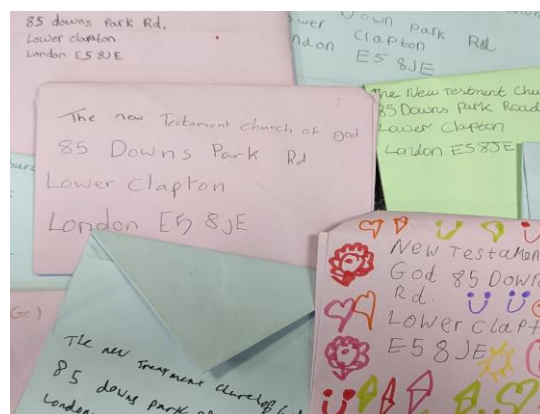 85 downs Park Rd.
Lower clapton
London E5 8JE
Down park Rd
Clapton
E5 8JE
The new Testament church of god
85 Downs Park Rd
Lower Clapton
London E5 8JE
the New Testment
85 Downs Park Road
Lower Clapton
London E5 8JE
New Testamen
God 85 Down
Rd.
Lower Clapt
E5 8JE
The new Treatment Church of
85 downs park
London